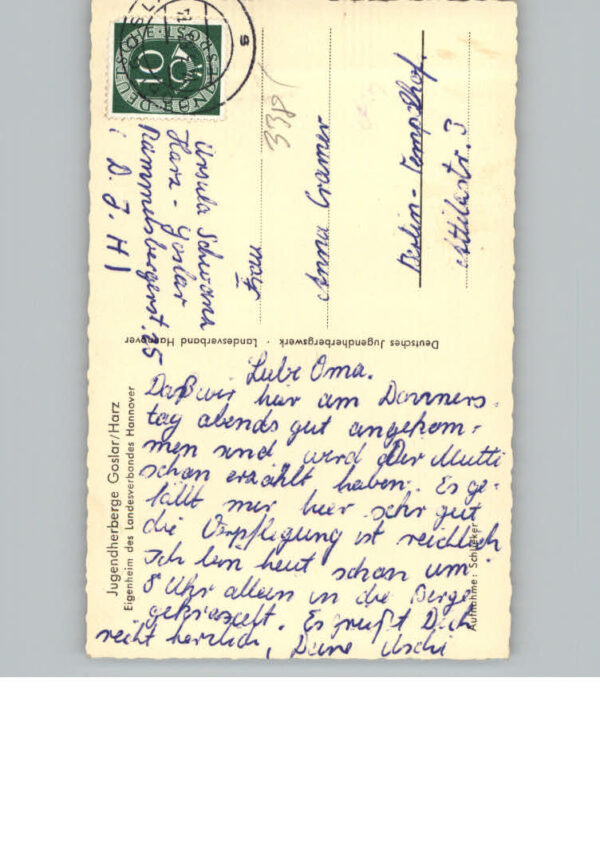 Jugendherberge Goslar/Harz
Eigenheim des Landesverbandes Hannover
Liebe Oma.
Daß wir hier am Donners-
tag abends gut angekom-
men sind wird Dir Mutti
schon erzählt haben. Es ge-
fällt mir hier sehr gut
die Verpflegung ist reichlich
Ich bin heut schon um
8 Uhr allein in die Berge
gekraxelt. Es grüßt Dich
recht herzlich, Deine Uschi
Aufnahme: Schlicker
Deutsches Jugendherbergswerk · Landesverband Hannover
DEUTSCHE BUNDESPOST
10
s
338
Ursula
Harz - Goslar
Rammelsbergerst. 25
i D. J. H!
Frau
Anna Cramer
Berlin - Tempelhof.
Attilastr. 3